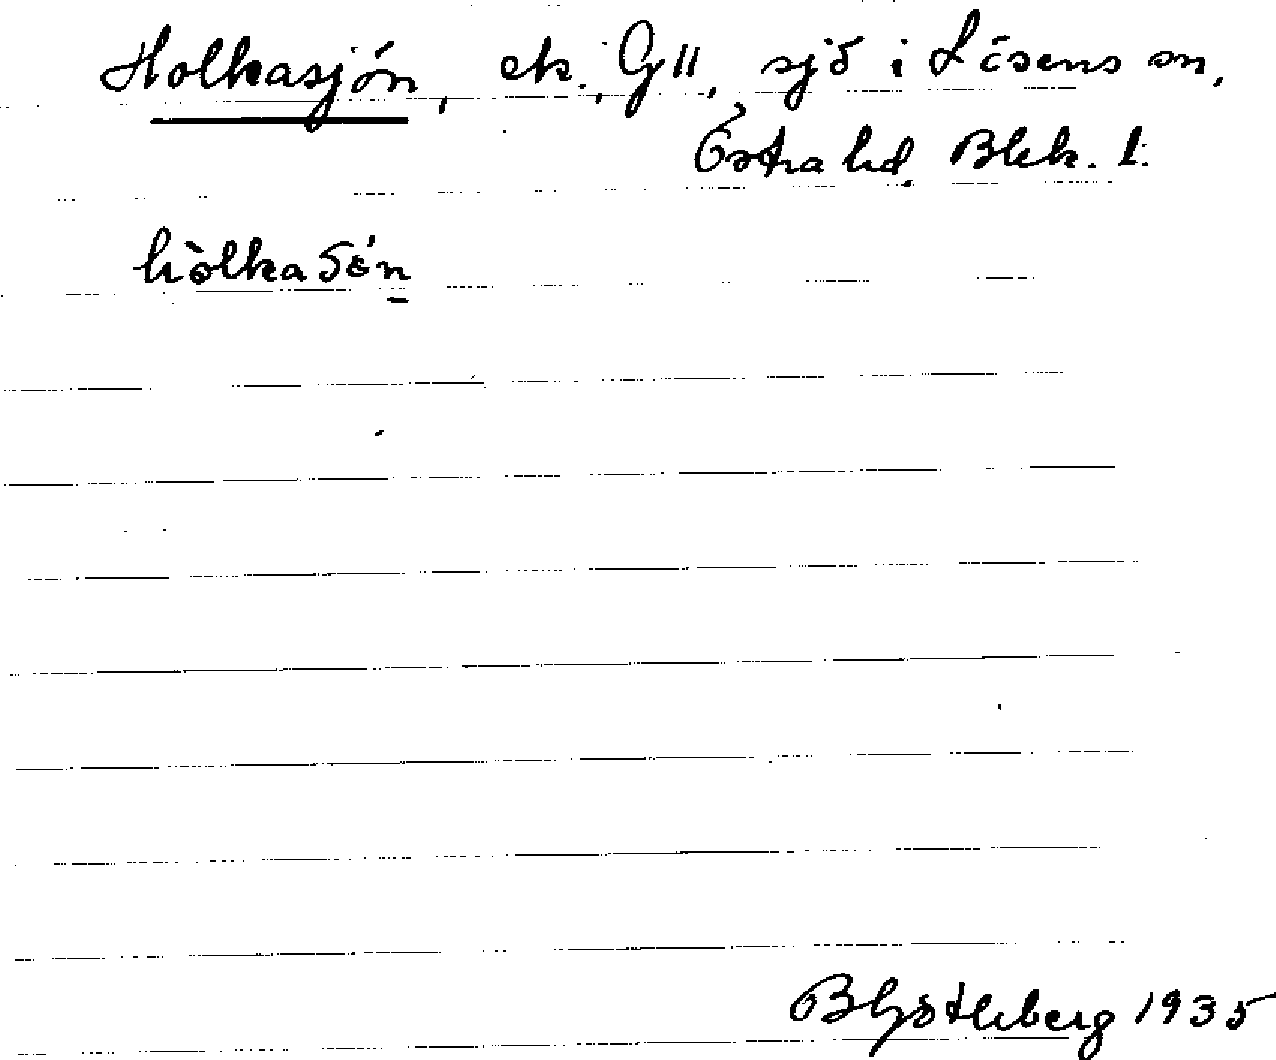 Holkasjön, ek. G11, sjö i Lösens sn,
Östra hd. Blek. l.
hòlkasǿn
B Götlleberg 1935